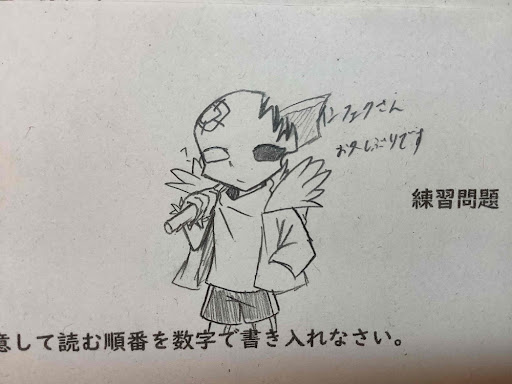 インフェクさん
お久しぶりです
練習問題
意して読む順番を数字で書き入れなさい。